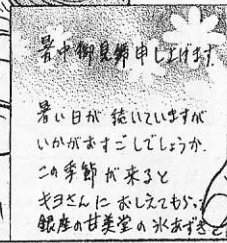 暑中御見舞申し上げます
暑い日が続いていますが
いかがおすごしでしょうか.
この季節が来ると
キヨさんにおしえてもらった
銀座の甘美堂の氷あずきと